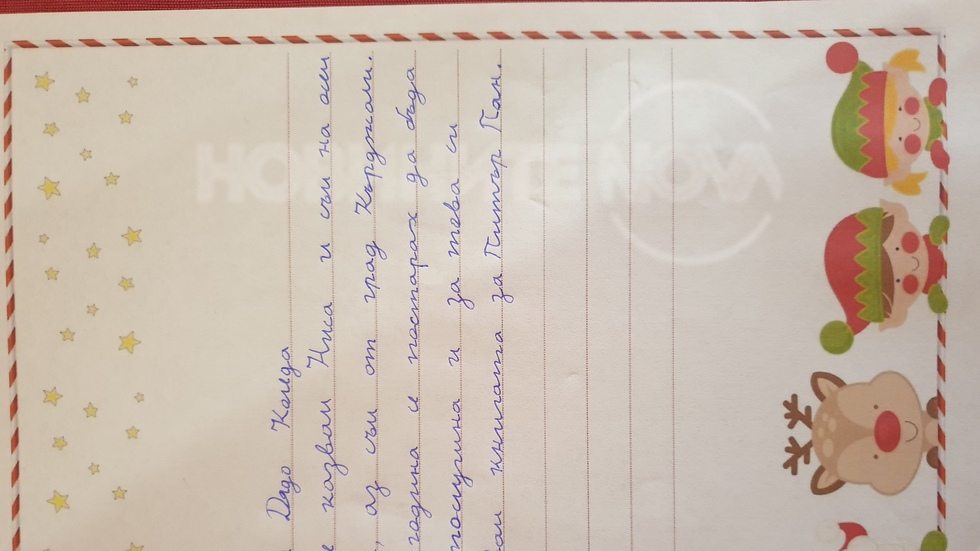 Дядо Коледа
казвам Ниса и съм на осм
, аз съм от град Кърджали.
година се постарах да бъда
послушна и за това си
книгата за Питър Пан.